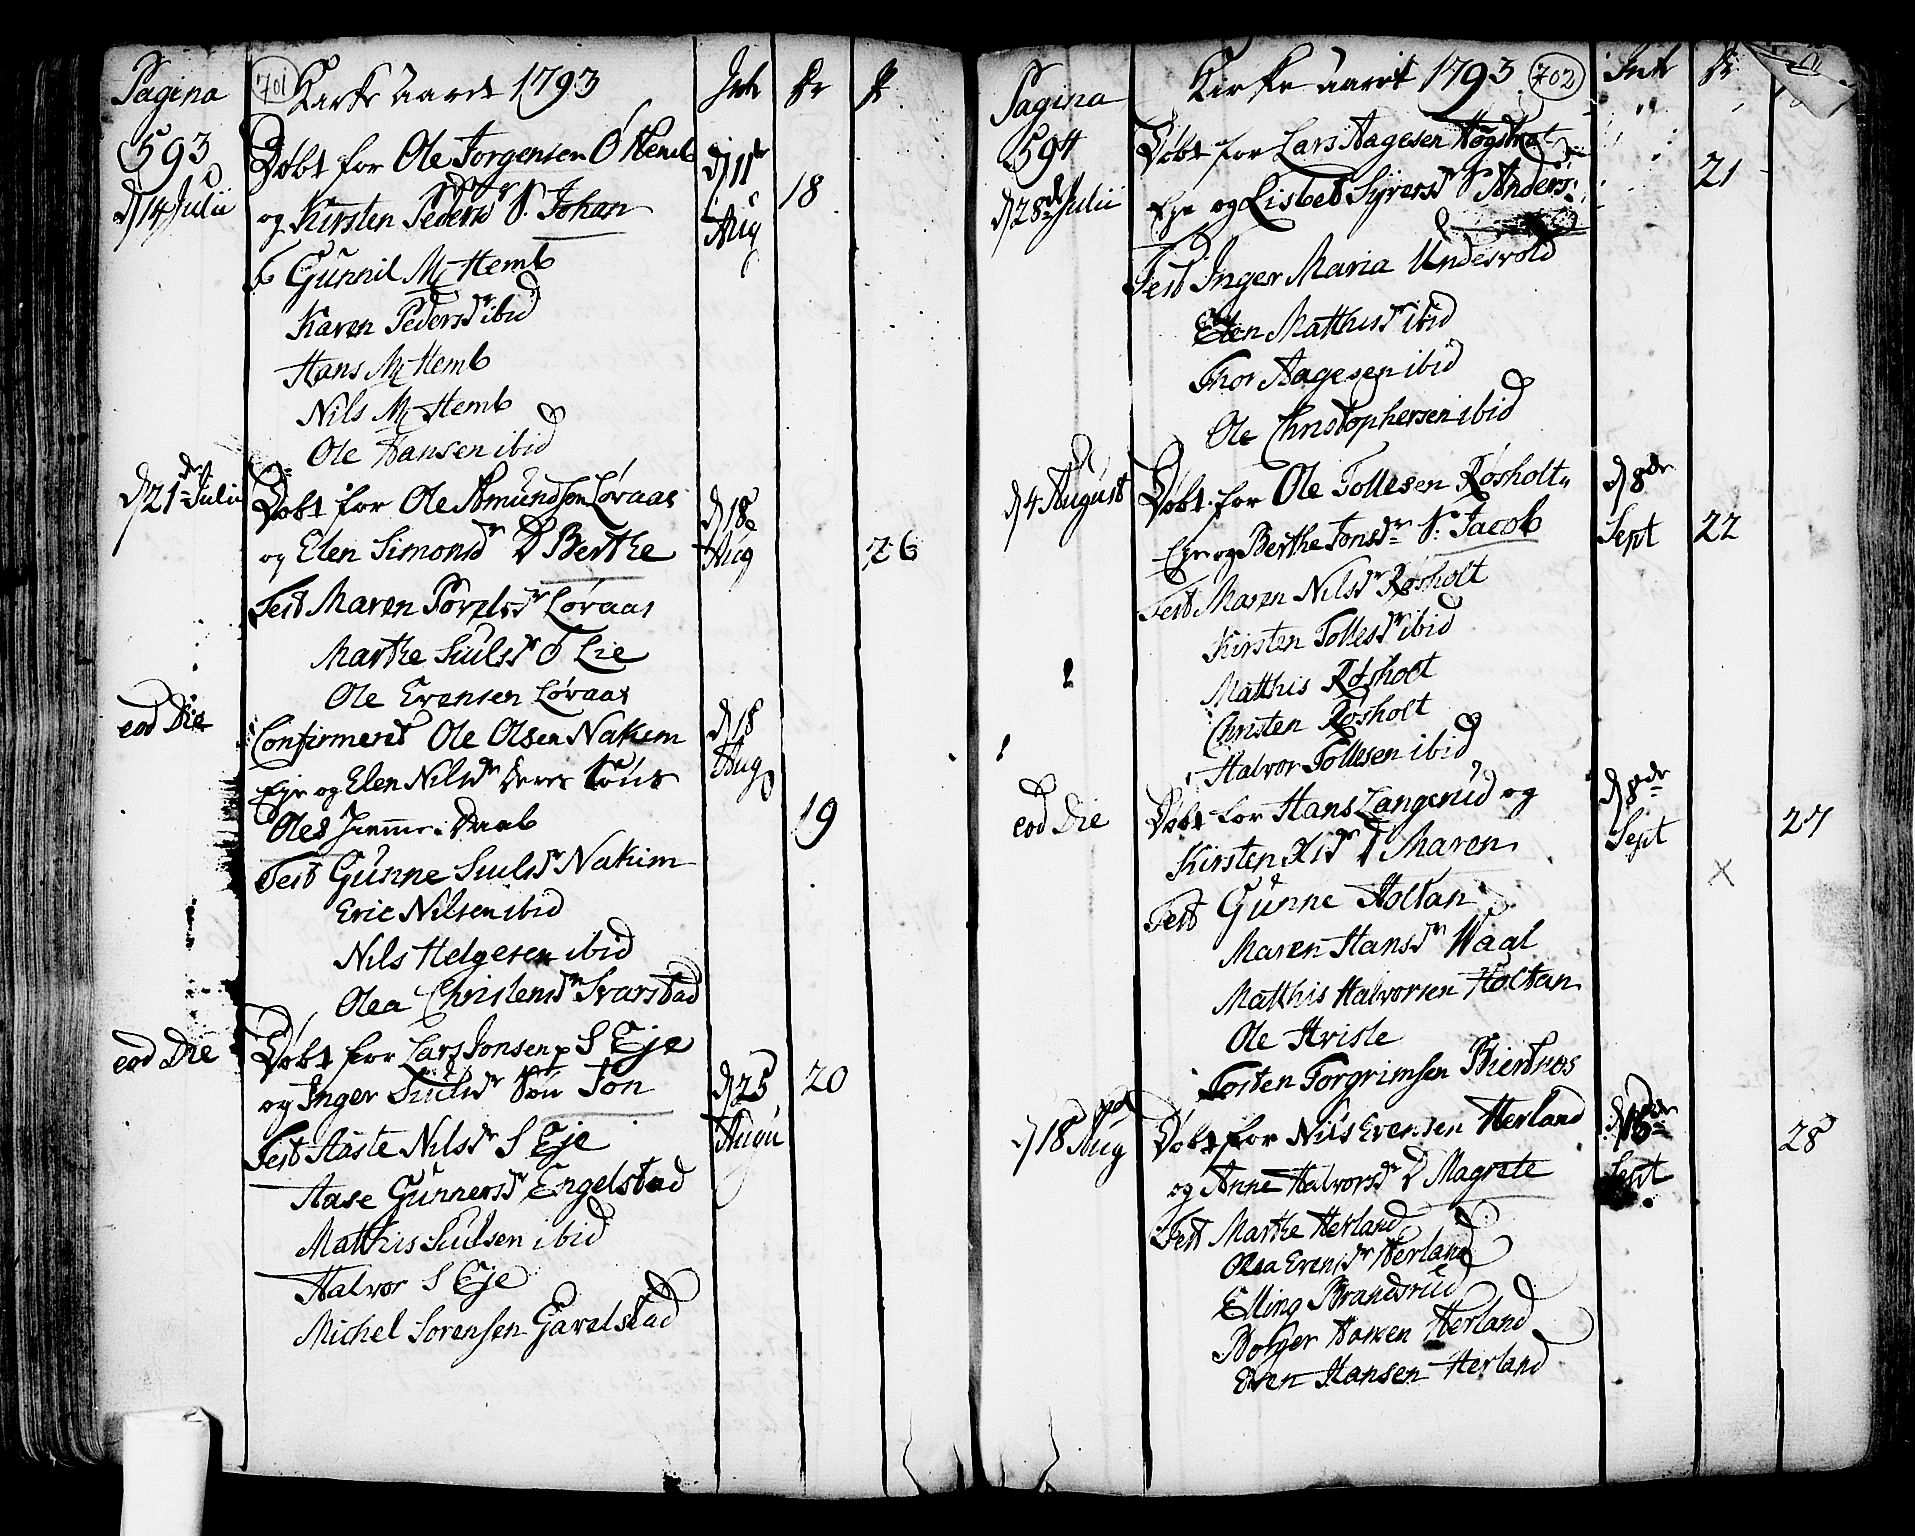 Pagina
593
701
Kirke Aaret 1793
Int
Døbt for Ole Jorgensen Ø Hemb
d 14 Julii
og Kirsten Pedersdr S. Johan
d 11te
Aug
18
F Gunnil M Hemb
Karen Pedersdr ibid
Hans M Hemb
Nils M Hemb
Ole Hansen ibid
d 21de Julii
Døbt for Ole Amundsen Løraas
og Elen Simonsdr D Berthe
d 18
Aug
26
Test Maren Povelsdr Løraas
Marthe Siulsdr Ø Lie
Ole Evensen Løraas
eod Die
Confirmeret Ole Olsen Nakim
Eje og Elen Nilsdr deres Søns
Oles Hjemme Daab
d 18
Aug
19
Test Gunne Siulsd Nakim
Eric Nilsen ibid
Nils Helgesen ibid
Olea Christensdr Svarstad
eod Die
Døbt for Lars Jonsen S Eje
og Inger Siulsdr Søn Jon
d 25
Augu
20
Test Aaste Nilsdr S Eje
Aase Gunnersdr Engelstad
Matthis Siulsen ibid
Halvor S Eje
Michel Sorensen Gavelstad
Pagina
594
Kirke aaret 1793
702
Int
Døbt for Lars Aagesen
d 28de Julii
Eje og Lisbet Syversdr S Anders
21
Test Inger Maria Undesvold
Elen Matthisdr ibid
Thor Aagesen ibid
Ole Christophersen ibid
d 4 August
Døbt for Ole Tollesen Røsholt
Eje og Berthe Jonsdr S. Jacob
d 8de
Sept
22
Test Maren Nilsdr Røsholt
Kirsten Tollesdr ibid
Matthis Røsholt
Christen Røsholt
Halvor Tollesen ibid
eod Die
Døbt for Hans Langerud og
Kirsten dr D Maren
d 8de
Sept
27
X
Test Gunne Holtan
Maren Hansdr Waal
Matthis Halvorsen Holtan
Ole Hvisle
Tosten Torgrimsen Biertnæs
d 18 Aug
Døbt for Nils Evensen Herland
og Anne Halvorsdr D Magrete
Sept
28
Test Marthe Herland
Olea Evensdr Herland
Elling Brandsrud
Børger Hansen Herland
Even Hansen Herland